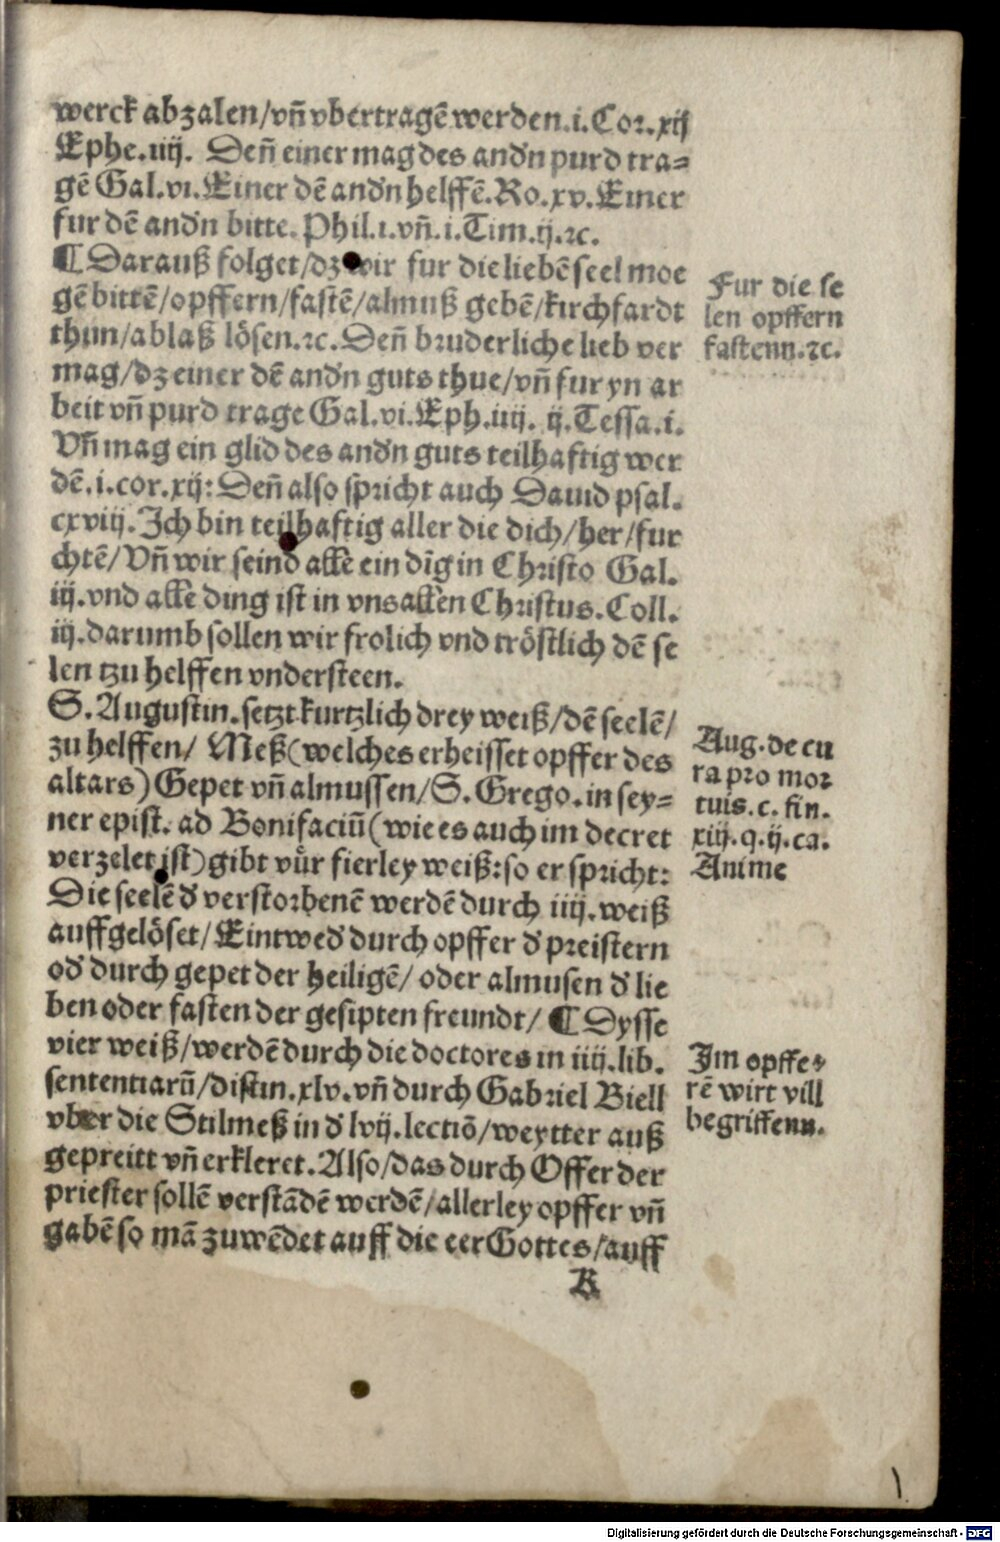 werck abzalen/vn̄ vbertragē werden.i.Cor.xij
Ephe.iiij. Den̄ einer mag des andn purd tra-
gē Gal.vi.Einer dē andn helffē.Ro.xv.Einer
fur dē andn bitte. Phil.i.vn̄.i.Tim.ij.ꝛc.
¶ Darauß folget/dz wir fur die liebē seel moe
gē bittē/opffern/fastē/almuß gebē/kirchfardt
thun/ablaß lösen.ꝛc.Den̄ bruderliche lieb ver
mag/dz einer dē andn guts thue/vn̄ fur yn ar
beit vn̄ purd trage Gal.vi.Eph.iiij. ij.Tessa.i.
Vn̄ mag ein glid des andn guts teilhaftig wer
dē.i.cor.xij:Den̄ also spricht auch Dauid psal.
cxviij.Ich bin teilhaftig aller die dich/her/fur
chtē/Vn̄ wir seind alle ein dīg in Christo Gal.
iij.vnd alle ding ist in vns allen Christus.Coll.
iij.darumb sollen wir frolich vnd tröstlich dē se
len tzu helffen vndersteen.
S.Augustin.setzt kurtzlich drey weiß/dē seelē/
zu helffen/ Meß(welches er heisset opffer des
altars)Gepet vn̄ almussen/S.Grego.in sey-
ner epist. ad Bonifaciū(wie es auch im decret
verzelet ist)gibt vür fierley weiß:so er spricht:
Die seelē d verstorbenē werdē durch iiij.weiß
auffgelöset/Eintwed durch opffer d preistern
od durch gepet der heiligē/ oder almusen d lie
ben oder fasten der gesipten freundt/ ¶ Dysse
vier weiß/werdē durch die doctores in iiij.lib.
sententiarū/distin.xlv.vn̄ durch Gabriel Biell
vber die Stilmeß in d lvij.lectiō/weytter auß
gepreitt vn̄ erkleret.Also/das durch Offer der
priester sollē verstādē werdē/allerley opffer vn̄
gabē so mā zuwēdet auff die eer Gottes/auff
K
Fur die se
len opffern
fastenn.ꝛc.
Aug.de cu
ra pro mor
tuis.c.fin.
xiij.q.ij.ca.
Anime
Im opffe-
rē wirt vill
begriffenn.
Digitalisierung gefördert durch die Deutsche Forschungsgemeinschaft - DFG